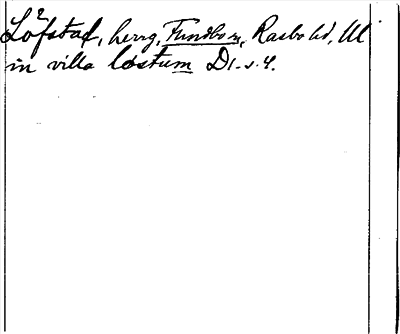 Löfstad, herrg, Funbo sn, Rasbo hd, Ul
in villa löstum D1. s. 4.